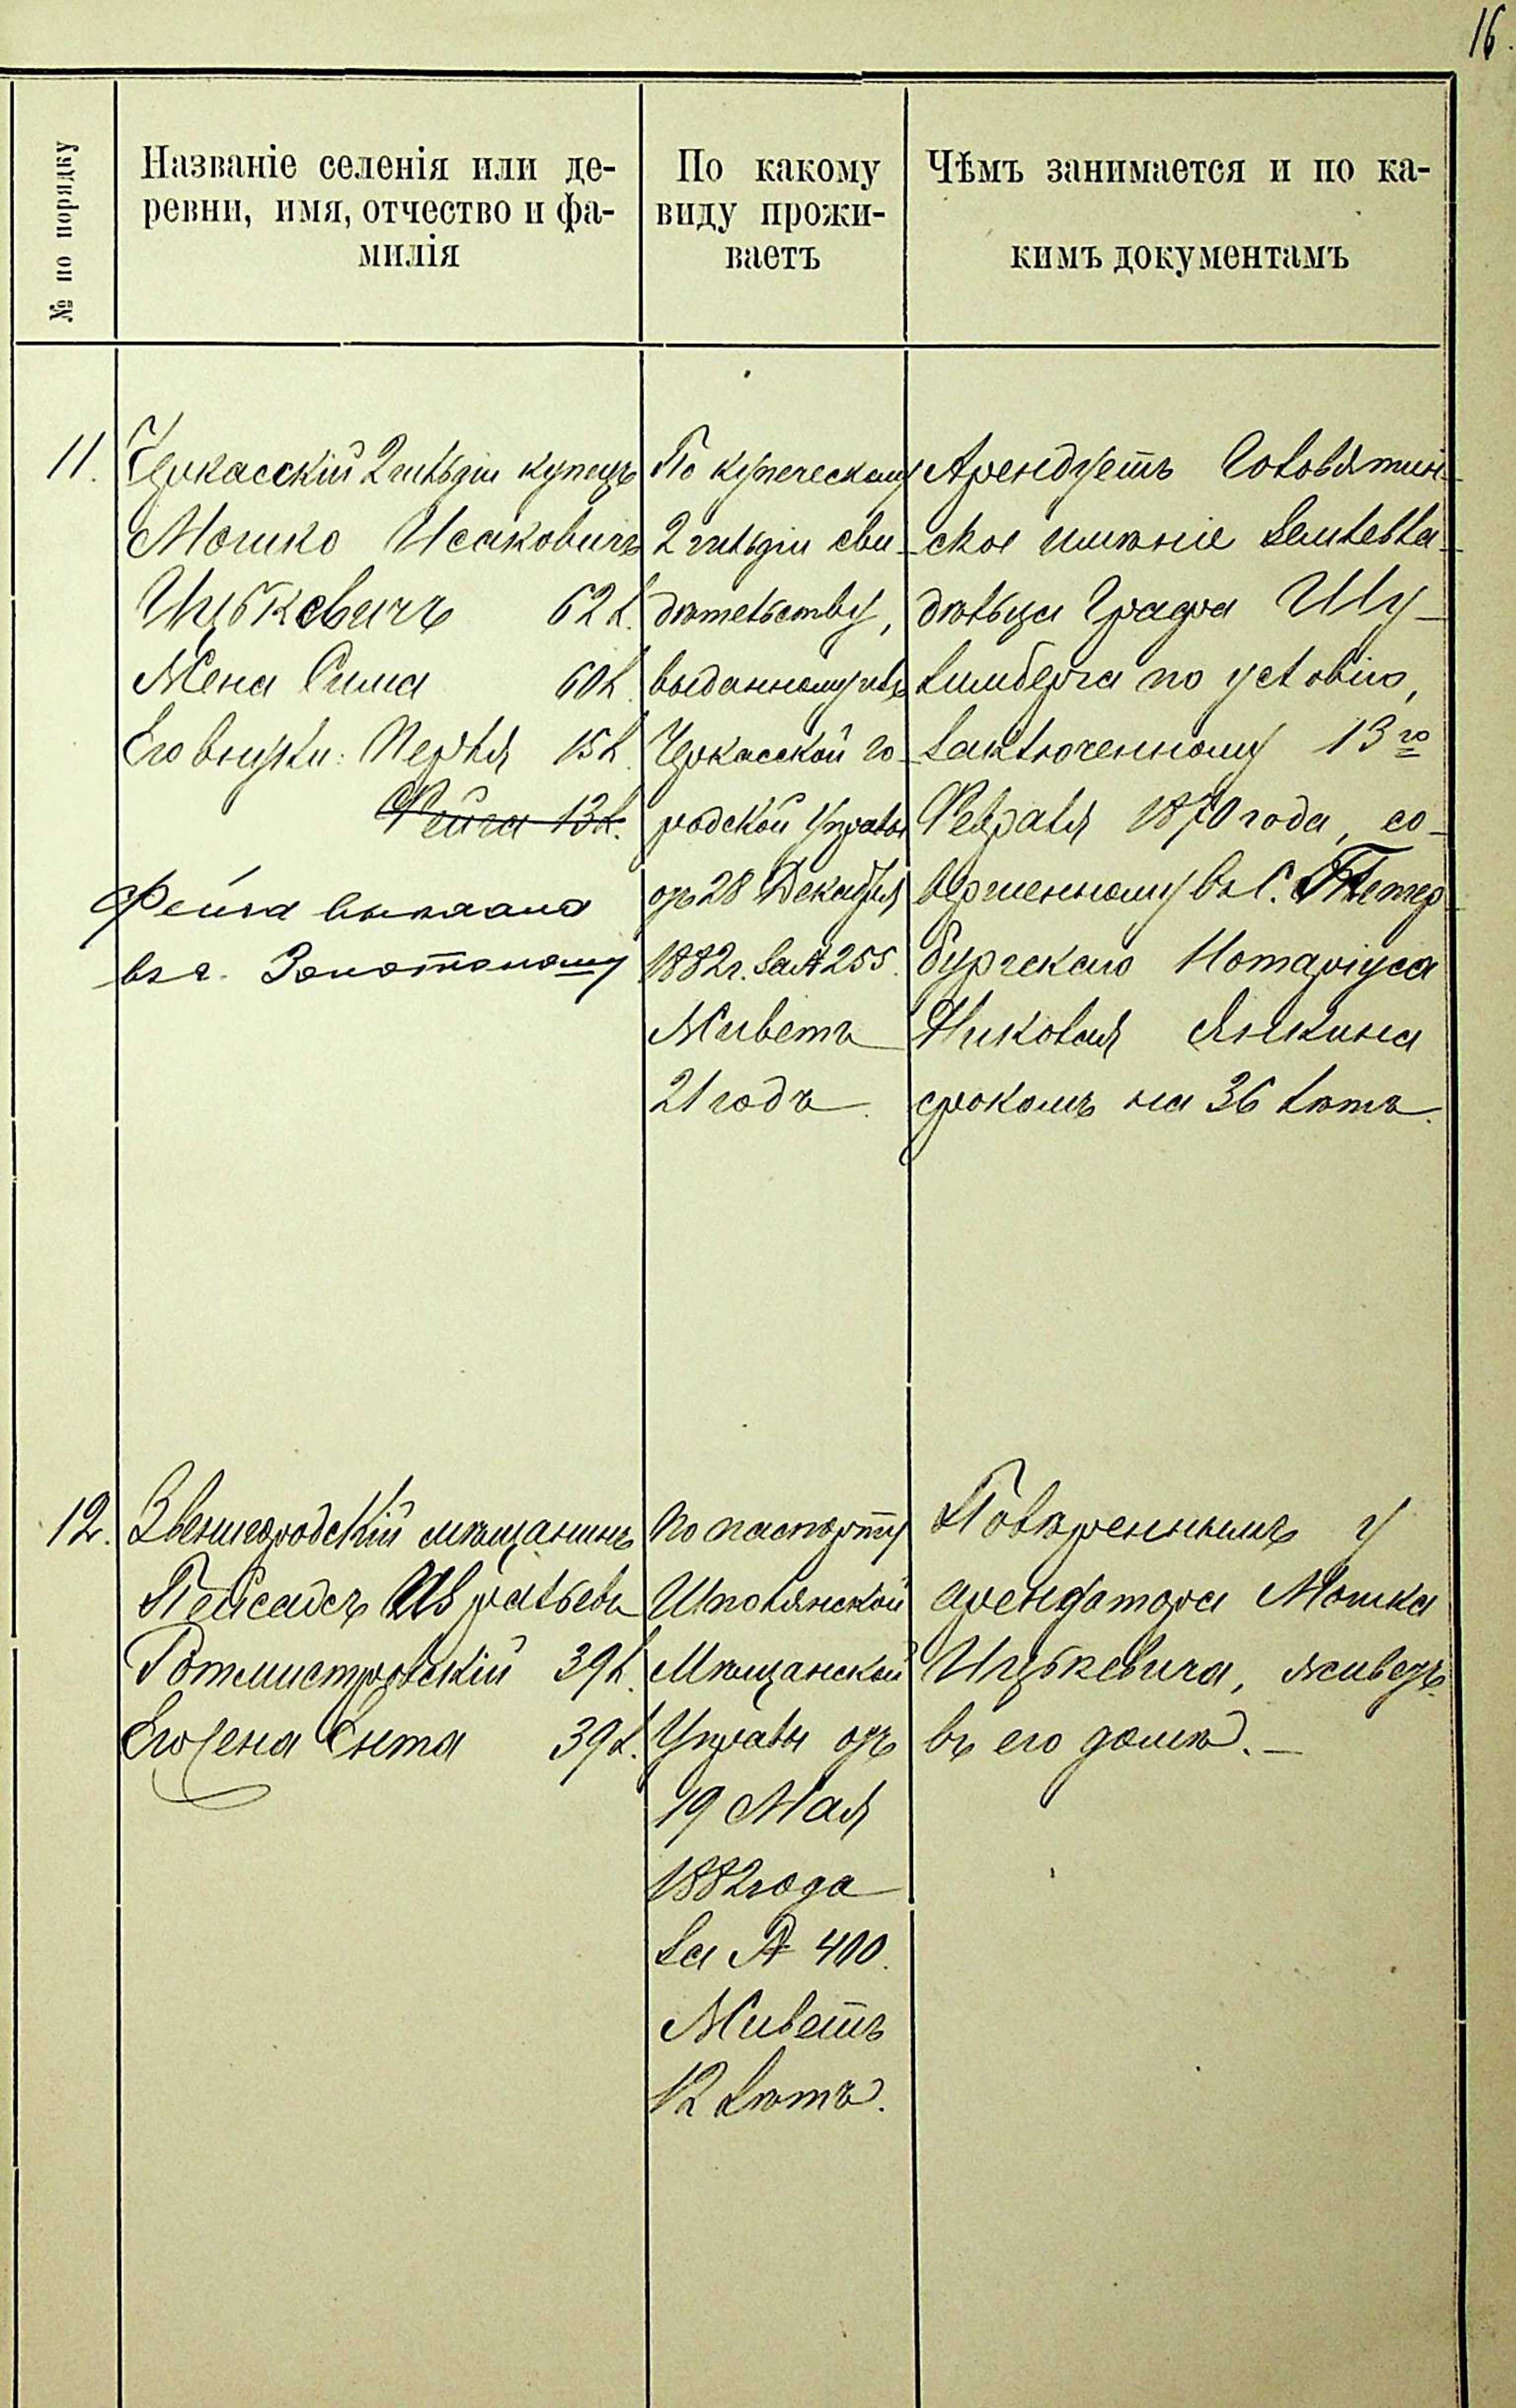 16.
№ по порядку
Названіе селенія или де-
ревни, имя, отчество и фа-
милія
По какому
виду прожи-
ваетъ
Чѣмъ занимается и по ка-
кимъ документамъ
11.
Черкасскій 2 гильдіи купецъ
Мошко Исаковичъ
Ицькевичъ 62 л.
Жена Сима 60 л.
Его внучки: Перля 15 л.
Фейга 13 л.
Фейга выехала
въ г. Золотоношу
По купеческому
2 гильдіи сви-
дѣтельству,
выданному изъ
Черкасской го-
родской Управы
отъ 28 Декабря
1882 г. за № 255.
Живетъ
21 годъ.
Арендуетъ Головятин-
ское имѣніе землевла-
дѣльца Графа Шу-
лимберга по условію,
заключенному 13го
Февраля 1870 года, со-
вершенному въ С. Петер-
бургскаго Нотаріуса
Николая Янкина
срокомъ на 36 лѣтъ.
12.
Звенигородскій мѣщанинъ
Пейсахъ Израильевъ
Ротмистровскій 39 л.
Его жена Ента 39 л.
По паспорту
Шполянской
Мѣщанской
Управы отъ
19 Мая
1882 года
за № 400.
Живетъ
12 лѣтъ.
Повѣреннымъ у
арендатора Мошка
Ицькевича, живетъ
въ его домѣ. —